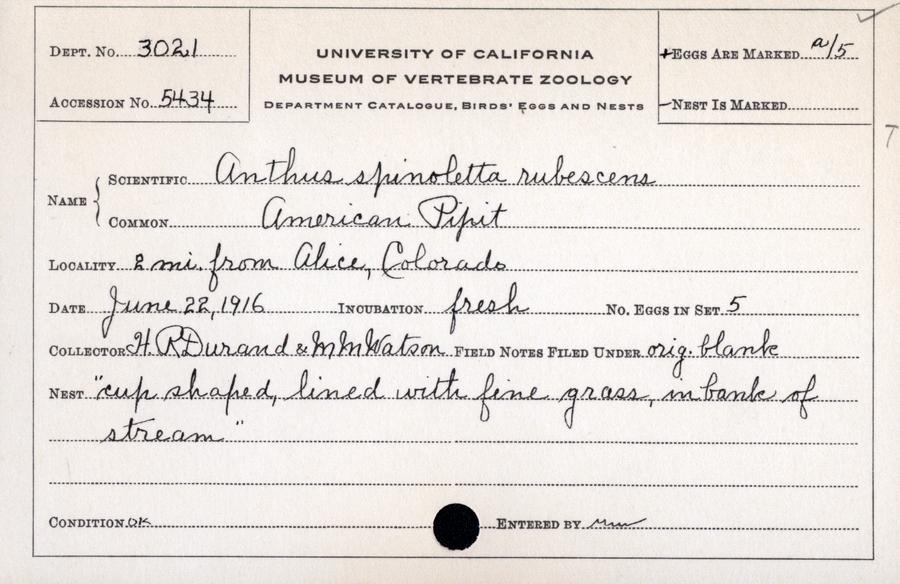 DEPT. No. 3021
UNIVERSITY OF CALIFORNIA
MUSEUM OF VERTEBRATE ZOOLOGY
DEPARTMENT CATALOGUE, BIRDS' EGGS AND NESTS
+EGGS ARE MARKED a/5
ACCESSION No. 5434
–NEST IS MARKED
T
NAME
SCIENTIFIC Anthus spinoletta rubescens
COMMON American Pipit
LOCALITY 2 mi. from Alice, Colorado
DATE June 22, 1916 INCUBATION fresh No. EGGS IN SET 5
COLLECTOR H. R. Durand & M M Watson FIELD NOTES FILED UNDER orig. blank
NEST "cup shaped, lined with fine grass, in bank of
stream"
CONDITION OK ENTERED BY